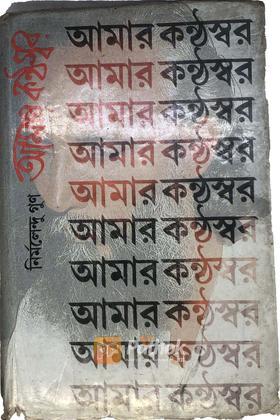 আমার কন্ঠস্বর
আমার কন্ঠস্বর
আমার কন্ঠস্বর
আমার কন্ঠস্বর
আমার কন্ঠস্বর
আমার কন্ঠস্বর
আমার কন্ঠস্বর
আমার কন্ঠস্বর
আমার কন্ঠস্বর
আমার কন্ঠস্বর
আমার কন্ঠস্বর
নির্মলেন্দু গুণ